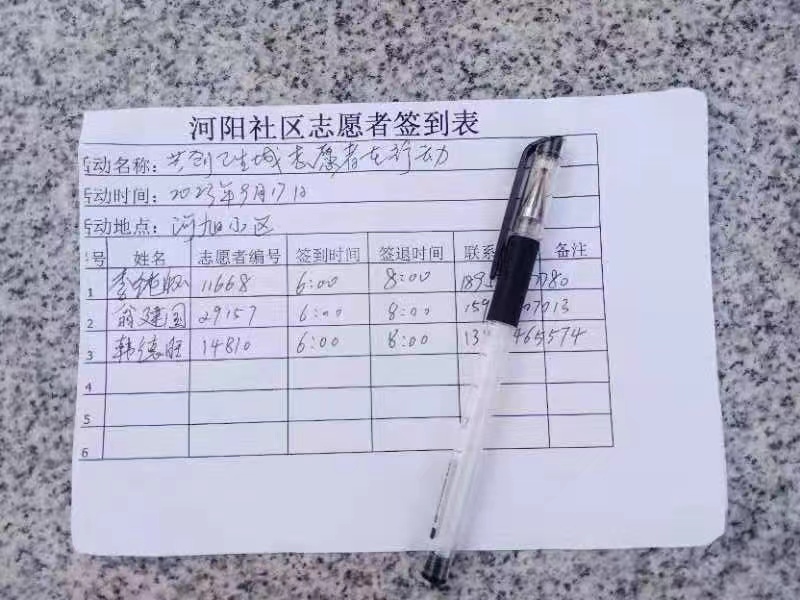 河阳社区志愿者签到表
活动名称：共创卫生城 志愿者在行动
活动时间：2023年9月17日
活动地点：河旭小区
序号 姓名 志愿者编号 签到时间 签退时间 联系 备注
1 11668 6:00 8:00 189 780
2 翁建国 29157 6:00 8:00 159 07013
3 韩德旺 14810 6:00 8:00 13 465574
4
5
6